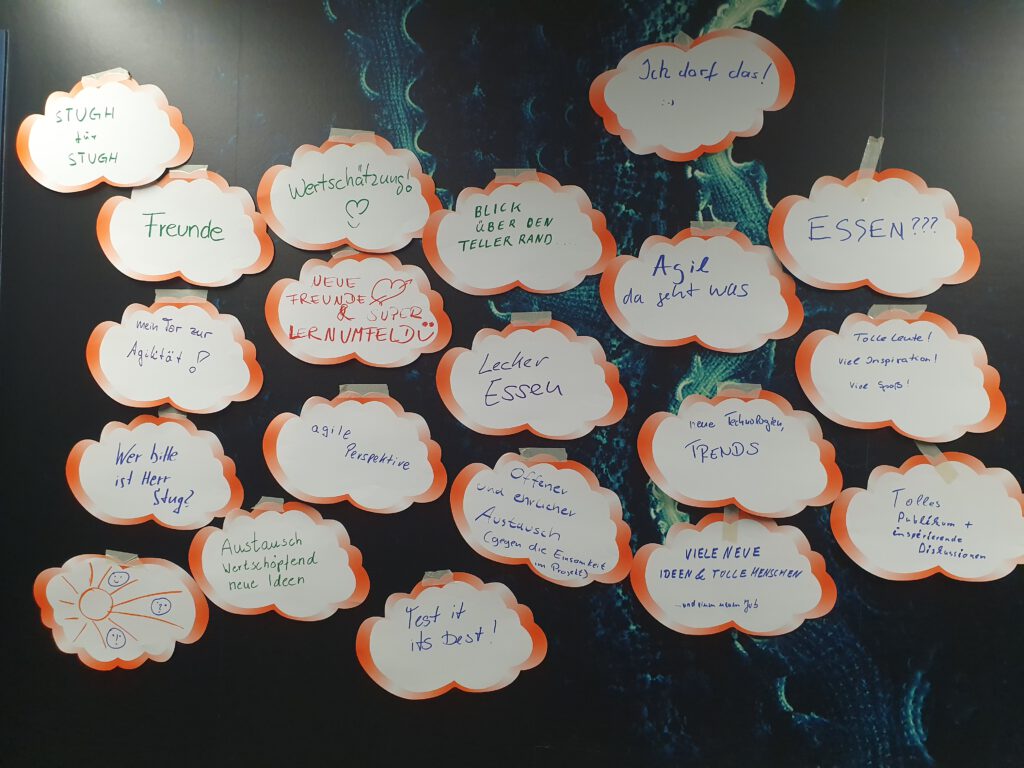 STUGH
für
STUGH
Freunde
Wertschätzung!
BLICK
ÜBER DEN
TELLERRAND....
Ich darf das!
:-)
ESSEN???
NEUE
FREUNDE
& SUPER
LERNUMFELD
Agil
da geht was
mein Tor zur
Agilität!
Lecker
Essen
Tolle Leute!
viel Inspiration!
Viel Spaß!
Wer bitte
ist Herr
Stug?
agile
Perspektive
neue Technologien,
TRENDS
Offener
und ehrlicher
Austausch
(gegen die Einsamkeit
im Projekt)
Tolles
Publikum +
inspirierende
Diskussionen
Austausch
Wertschöpfend
neue Ideen
VIELE NEUE
IDEEN & TOLLE MENSCHEN
...und einen neuen Job
Test it
its best!